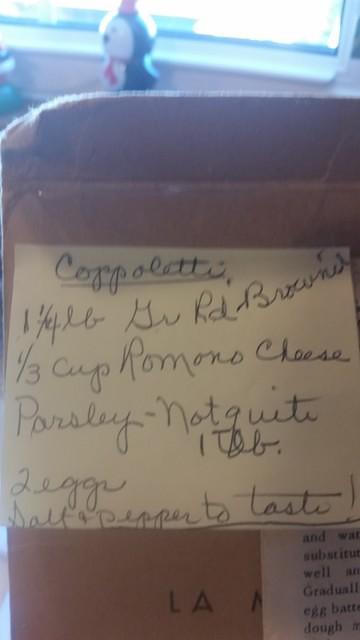 Coppoletti
1 1/4 lb Gr Rd Browned
1/3 cup Romono Cheese
Parsley - Not quite
1 Tlb.
2 eggs
Salt & pepper to taste!
and wat
substitut
well an
Graduall
egg batte
dough m
LA